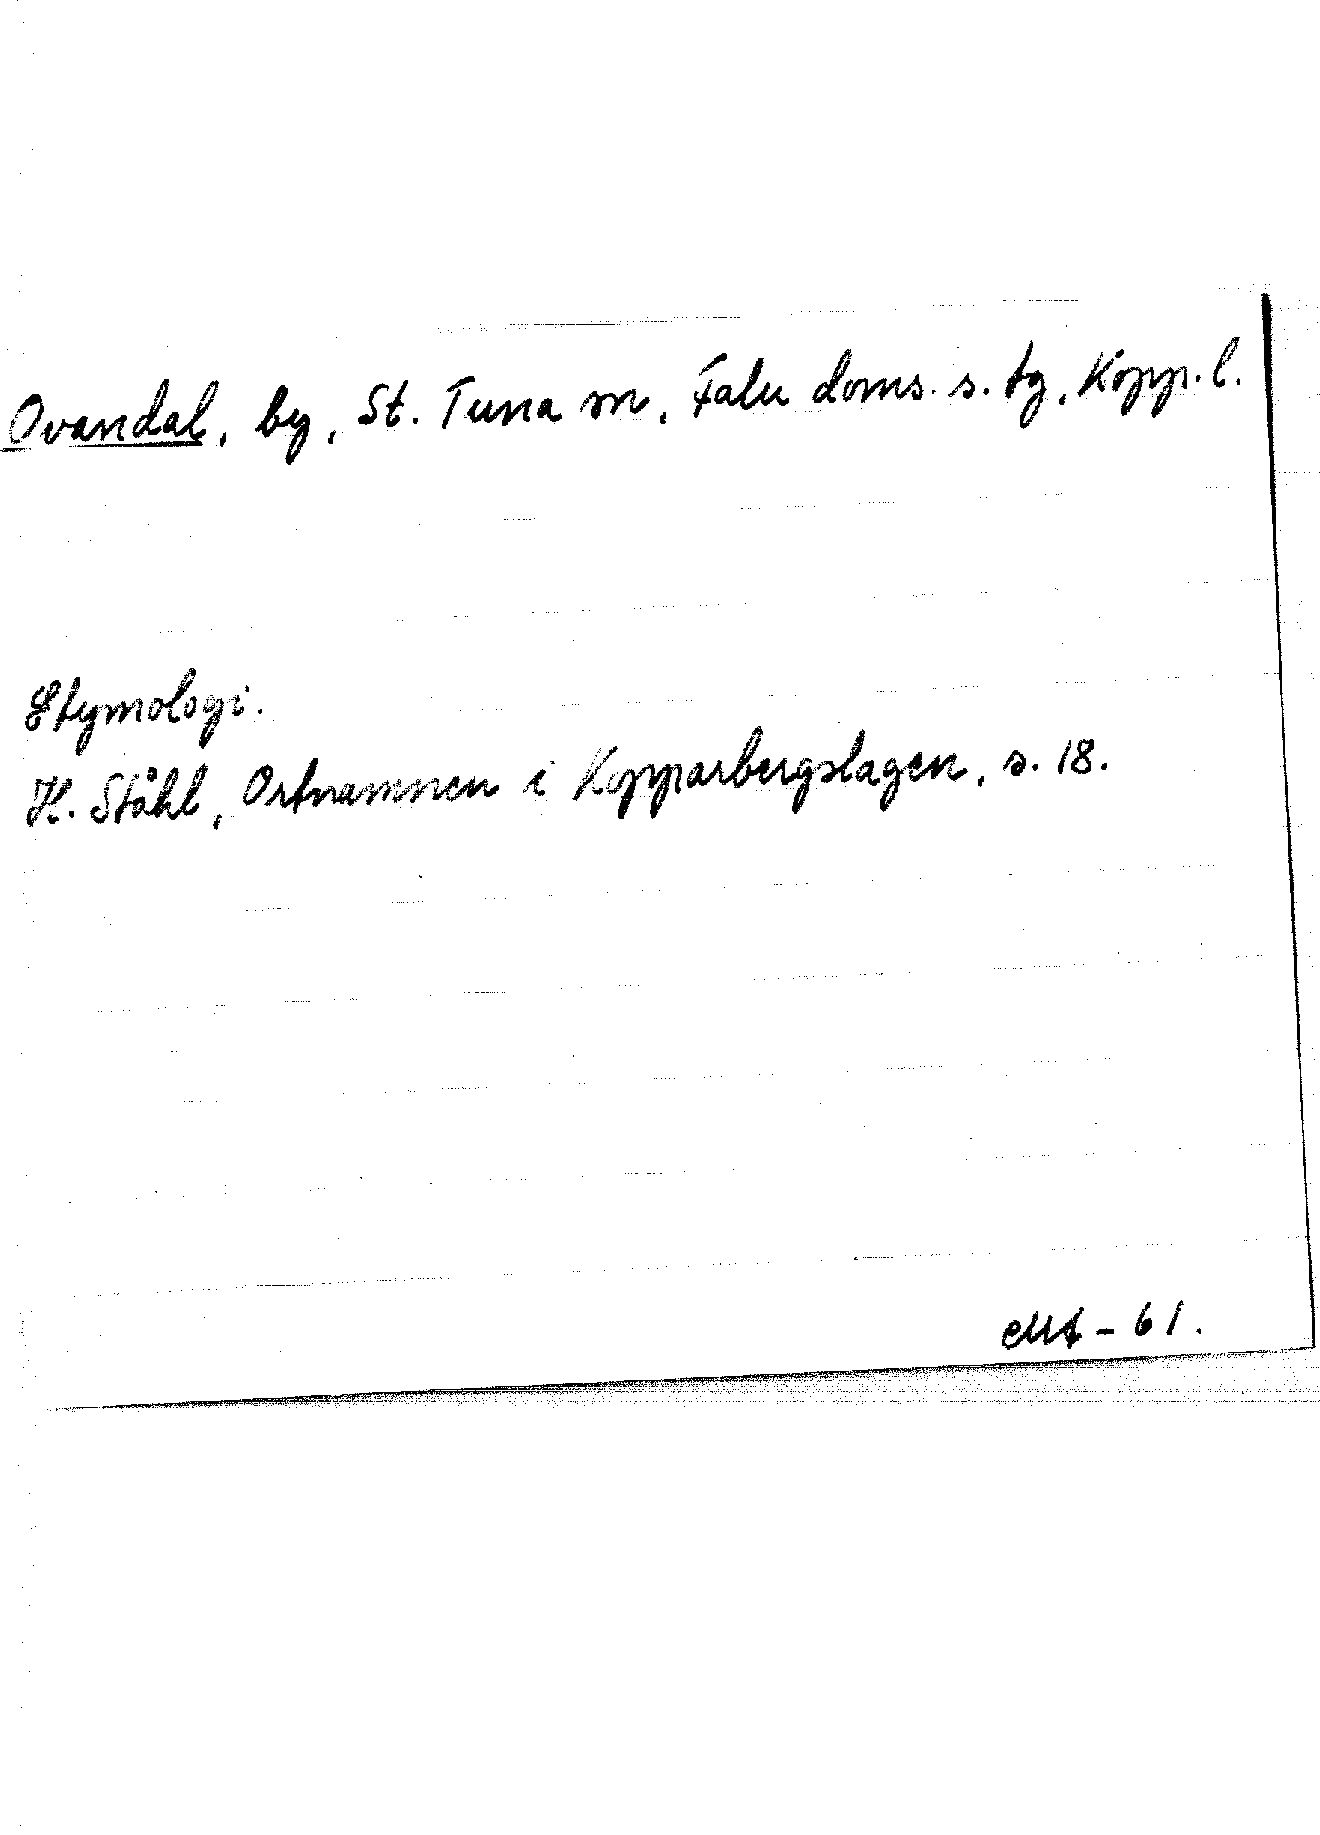 Ovandal, by, St. Tuna sn, Falu doms. s. tg, Kopp. l.
Etymologi.
H. Ståhl, Ortnamnen i Kopparbergslagen, s. 18.
- 61.